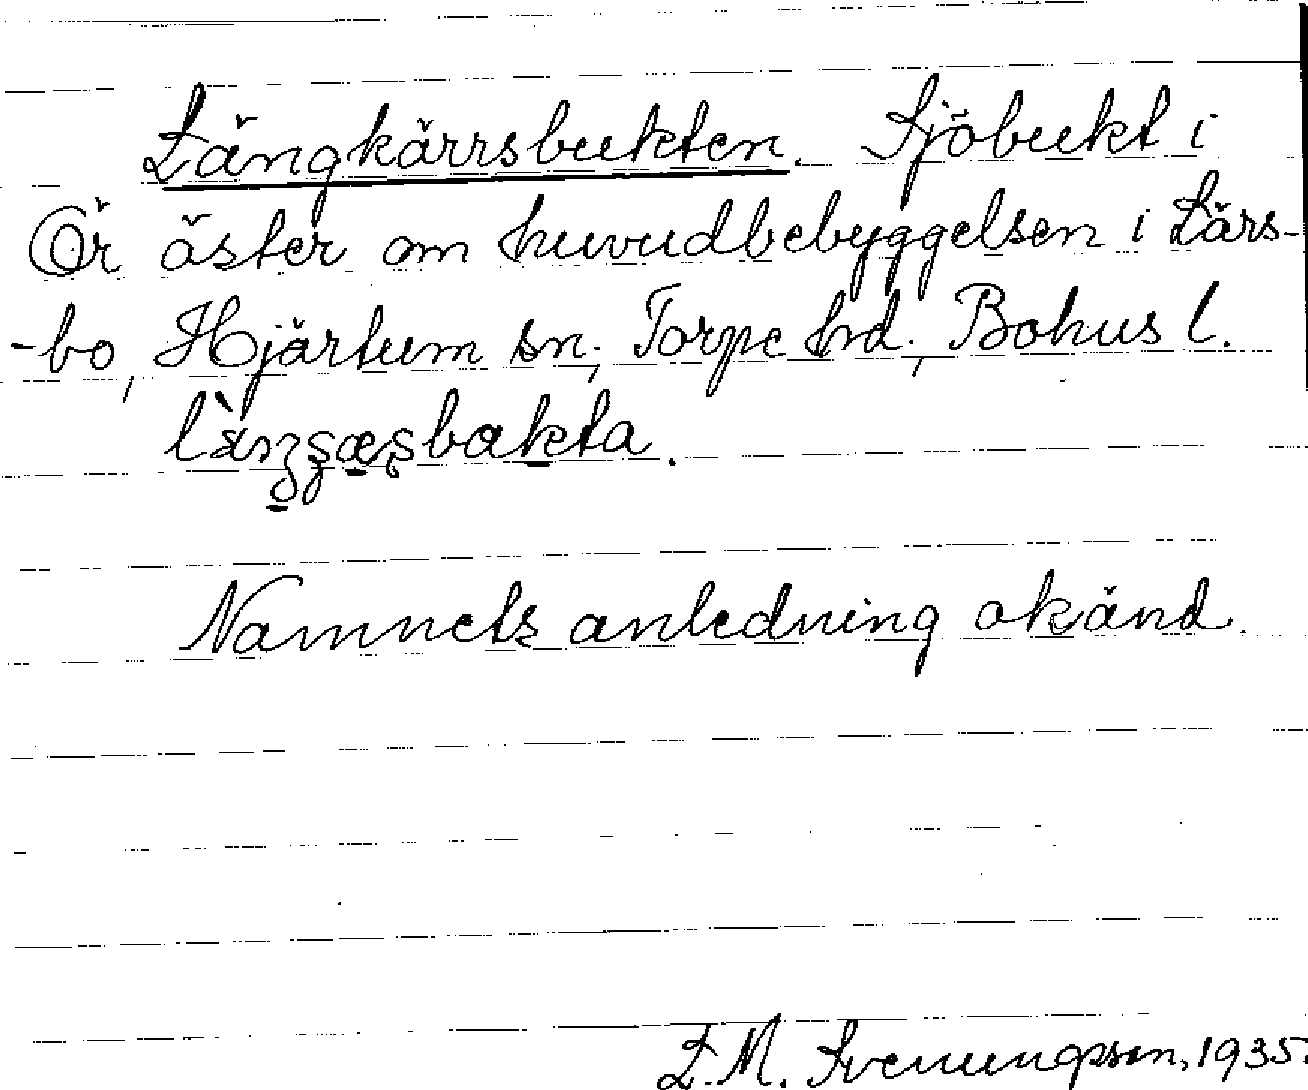 Långkärrsbukten. Sjöbukt i
Ör öster om huvudbebyggelsen i Lars-
-bo, Hjärtum sn; Torpe hd; Bohus l.
Namnets anledning okänd.
L. M. Svenungsson, 1935.